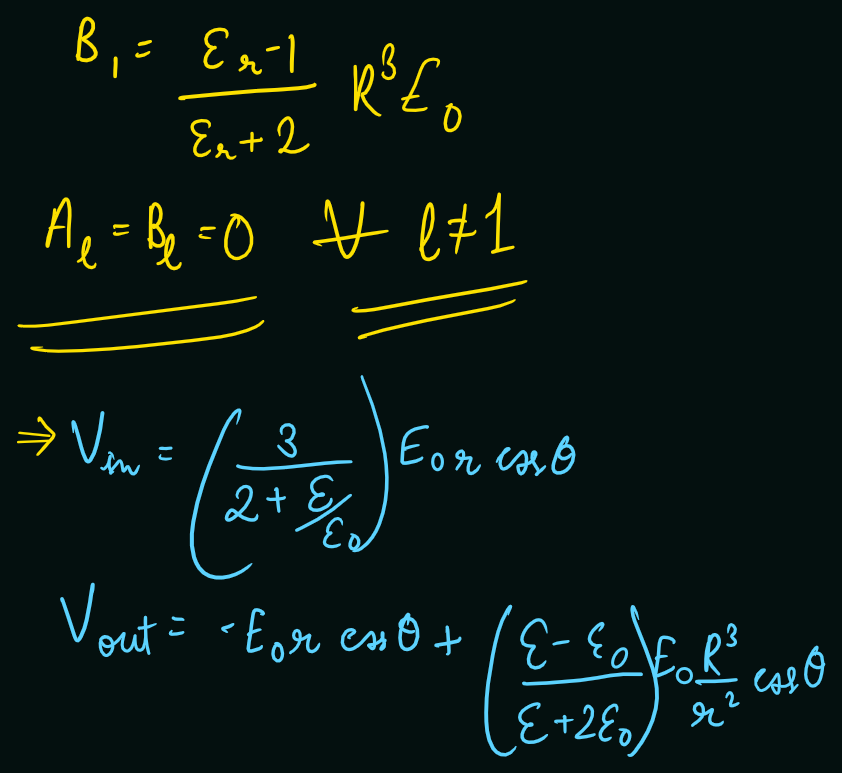 B₁ = (εr - 1)/(εr + 2) R³E₀
A_ℓ = B_ℓ = 0 ∀ ℓ ≠ 1
⇒ V_in = (3/(2 + ε/ε₀)) E₀ r cosθ
V_out = -E₀ r cosθ + ((ε - ε₀)/(ε + 2ε₀)) E₀ R³/r² cosθ